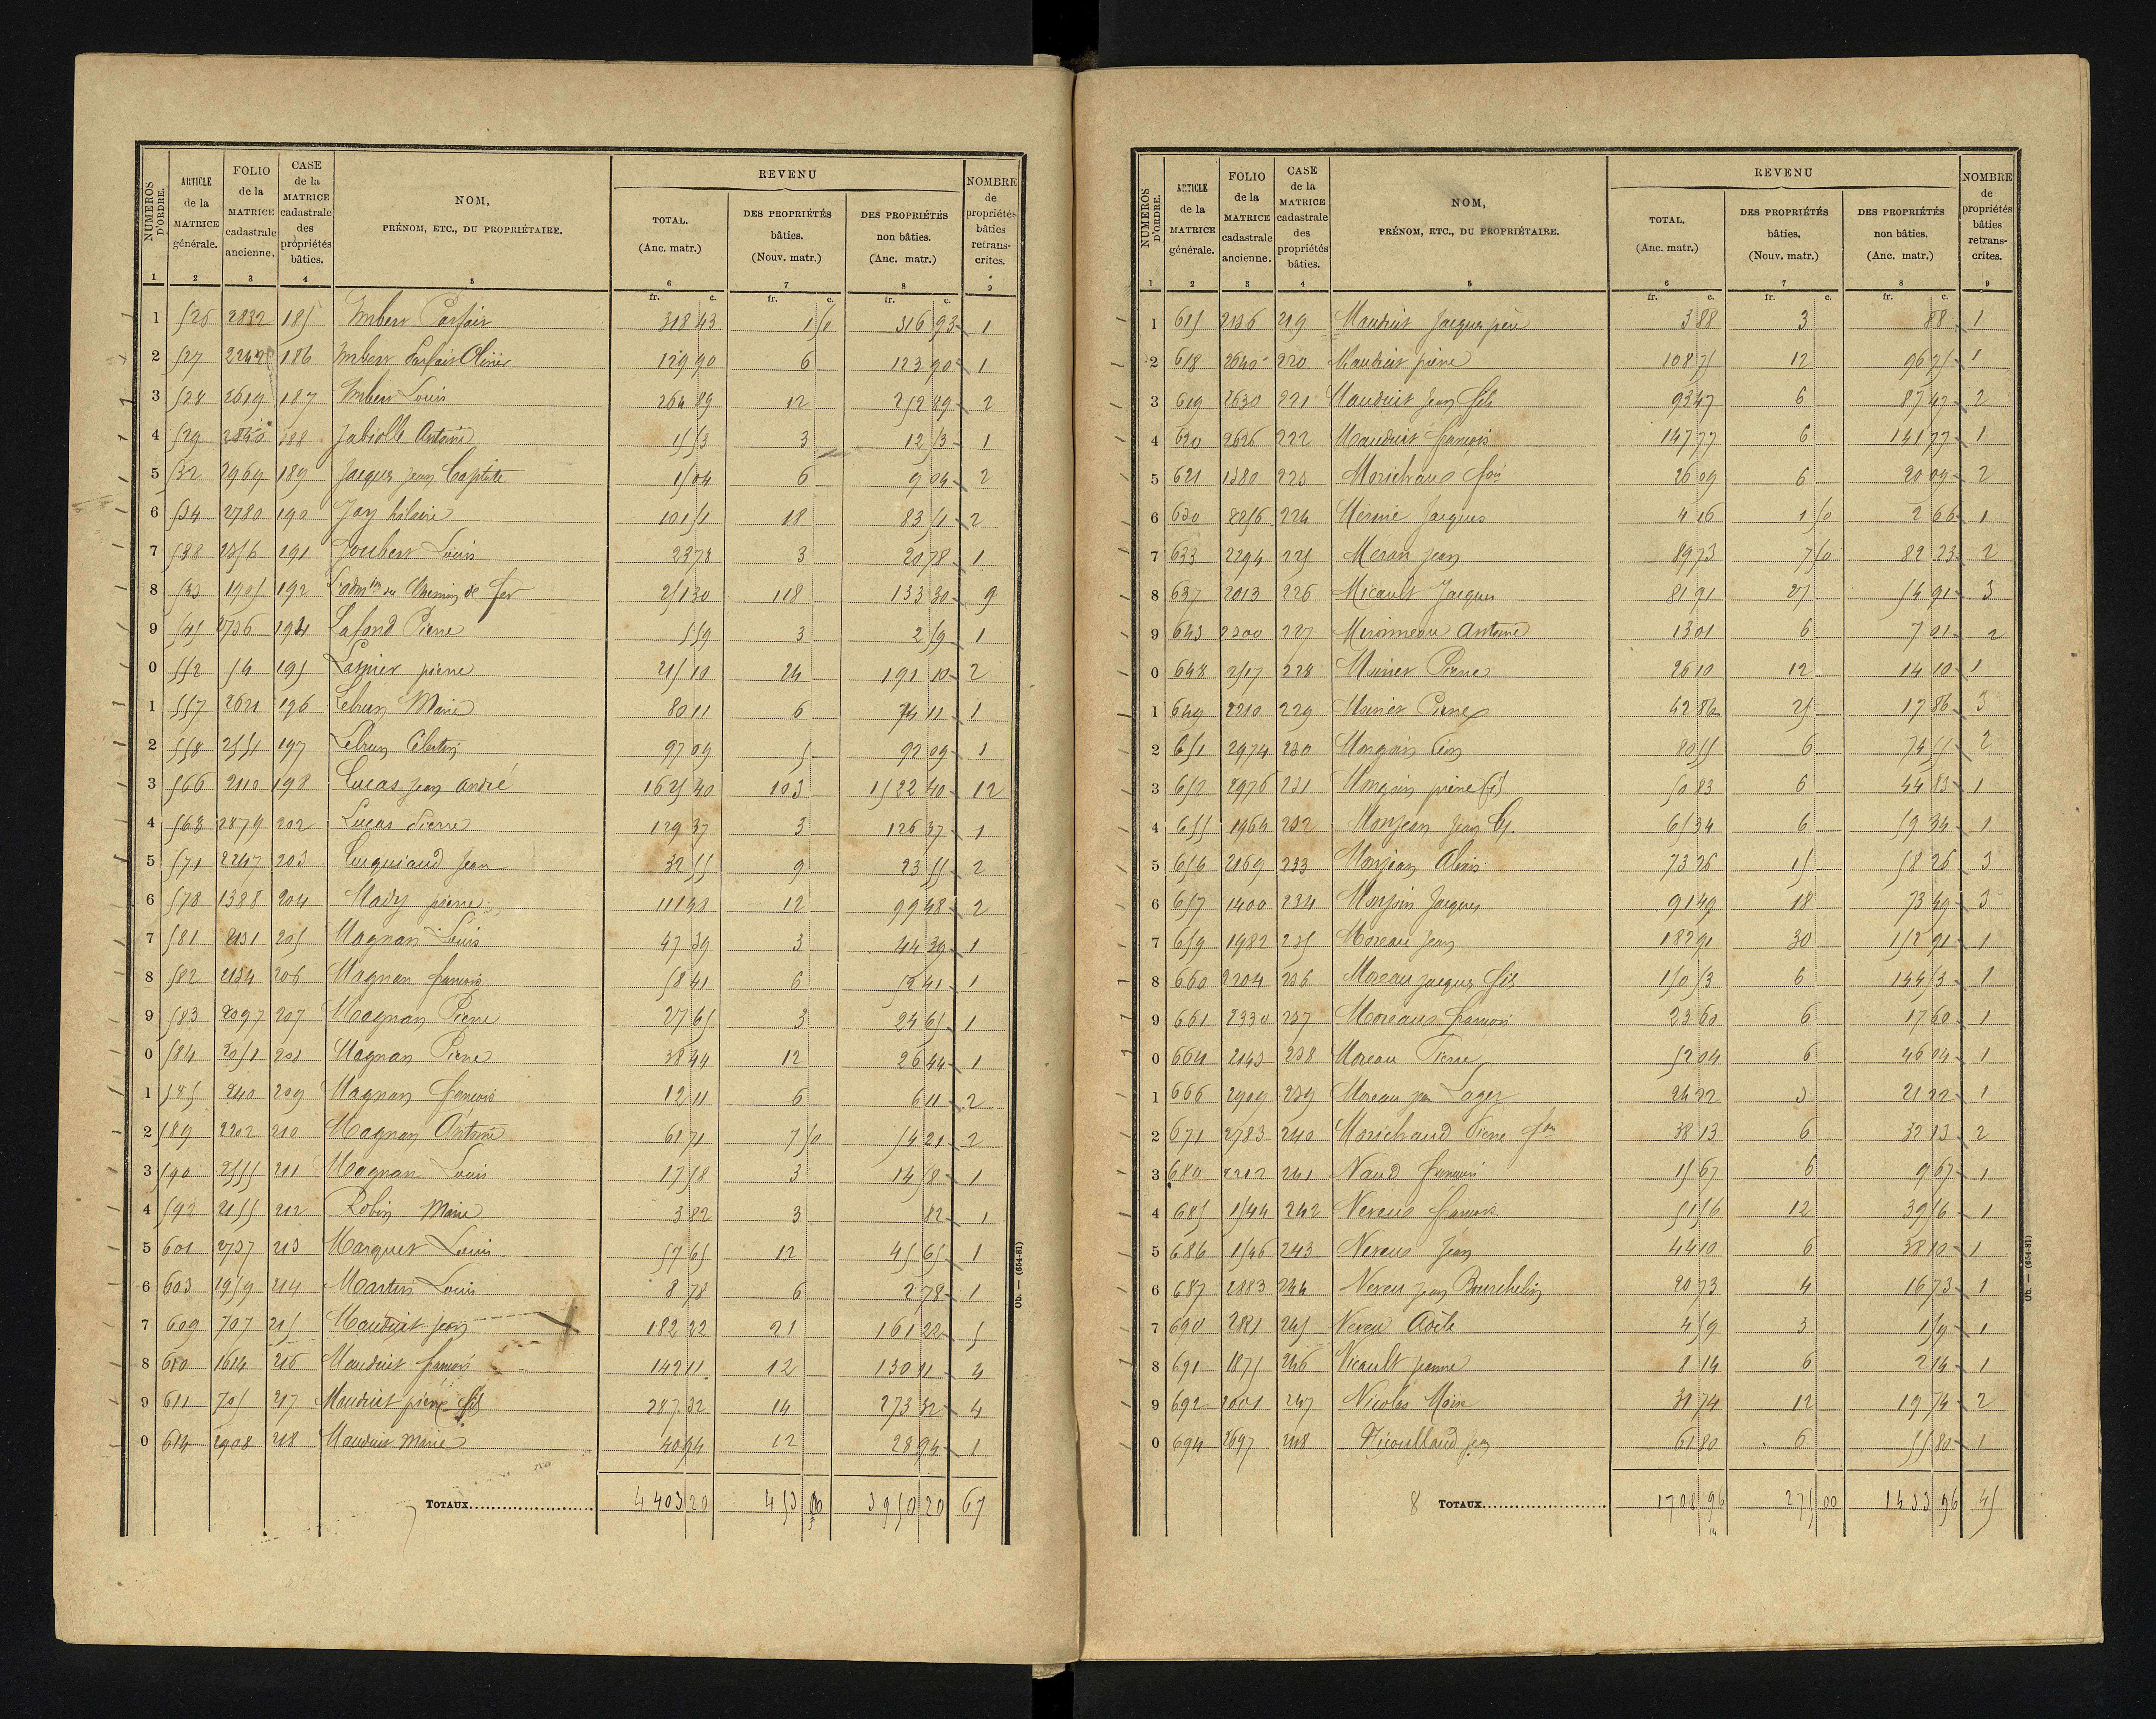 NUMÉROS D'ORDRE. | ARTICLE de la MATRICE générale. | FOLIO de la MATRICE cadastrale ancienne. | CASE de la MATRICE cadastrale des propriétés bâties. | NOM, PRÉNOM, ETC., DU PROPRIÉTAIRE. | REVENU TOTAL. (Anc. matr.) | DES PROPRIÉTÉS bâties. (Nouv. matr.) | DES PROPRIÉTÉS non bâties. (Anc. matr.) | NOMBRE de propriétés bâties retranscrites.
1 2 3 4 5 6 7 8 9
fr. c. fr. c. fr. c.
1 526 2832 185 Imbert Parfait 318 43 1 50 316 93 1
2 527 186 Imbert Parfait Olivier 129 90 6 123 90 1
3 528 2619 187 Imbert Louis 264 89 12 252 89 2
4 529 188 Jabiolle Antoine 15 53 3 12 53 1
5 532 2969 189 Jacques Jean Baptiste 15 04 6 9 04 2
6 534 2780 190 Jay hilaire 101 51 18 83 51 2
7 538 2356 191 Joubert Louis 23 78 3 20 78 1
8 1905 192 L'admon du Chemin de fer 251 30 118 133 30 9
9 541 2736 194 Lafond Pierre 5 59 3 2 59 1
0 552 54 195 Lasnier pierre 215 10 24 191 10 2
1 557 2621 196 Lebrun Marie 80 11 6 74 11 1
2 558 2551 197 Lebrun Célestin 97 09 5 92 09 1
3 566 2110 198 Lucas Jean André 1625 40 103 1522 40 12
4 568 2879 202 Lucas Pierre 129 37 3 126 37 1
5 571 2247 203 Luquiaud Jean 32 55 9 23 55 2
6 578 1388 204 Mady pierre 111 48 12 99 48 2
7 581 2131 205 Magnan Louis 47 39 3 44 39 1
8 582 2134 206 Magnan françois 58 41 6 52 41 1
9 583 2097 207 Magnan Pierre 27 65 3 24 65 1
0 584 2051 208 Magnan Pierre 38 44 12 26 44 1
1 585 240 209 Magnan françois 12 11 6 6 11 2
2 589 2202 210 Magnan Antoine 61 71 7 50 54 21 2
3 590 2555 211 Magnan Louis 17 58 3 14 58 1
4 592 2155 212 Robin Marie 3 82 3 82 1
5 601 2737 213 Marquet Louis 57 65 12 45 65 1
6 603 1959 214 Martin Louis 8 78 6 2 78 1
7 609 707 215 Mauduit Jean 182 22 21 161 22 5
8 610 1614 216 Mauduit françois 142 11 12 130 11 4
9 611 705 217 Mauduit pierre fils 287 32 14 273 32 4
0 614 2908 218 Mauduit Marie 40 94 12 28 94 1
TOTAUX 4403 20 453 00 3950 20 67
Ob. — (654-81)
NUMÉROS D'ORDRE. | ARTICLE de la MATRICE générale. | FOLIO de la MATRICE cadastrale ancienne. | CASE de la MATRICE cadastrale des propriétés bâties. | NOM, PRÉNOM, ETC., DU PROPRIÉTAIRE. | REVENU TOTAL. (Anc. matr.) | DES PROPRIÉTÉS bâties. (Nouv. matr.) | DES PROPRIÉTÉS non bâties. (Anc. matr.) | NOMBRE de propriétés bâties retranscrites.
1 2 3 4 5 6 7 8 9
fr. c. fr. c. fr. c.
1 615 2136 219 Mauduit Jacques père 3 88 3 88 1
2 618 2640 220 Mauduit pierre 108 75 12 96 75 1
3 619 2630 221 Mauduit Jean fils 93 47 6 87 47 2
4 620 2626 222 Mauduit françois 147 77 6 141 77 1
5 621 1380 223 Morichaud 26 09 6 20 09 2
6 630 2256 224 Jacques 4 16 1 50 2 66 1
7 633 2294 225 Meran Jean 89 73 7 50 82 23 2
8 637 2013 226 Micault Jacques 81 91 27 54 91 3
9 643 2300 227 Mironneau Antoine 13 01 6 7 01 2
0 648 2517 228 Pierre 26 10 12 14 10 1
1 649 2210 229 Pierre 42 86 25 17 86 3
2 651 2974 230 80 55 6 74 55 2
3 652 2976 231 pierre 50 83 6 44 83 1
4 655 1964 232 Monjean Jean 65 34 6 59 34 1
5 656 2169 233 Monjean 73 26 15 58 26 3
6 657 1400 234 Jacques 91 49 18 73 49 3
7 659 1982 235 Moreau Jean 182 91 30 152 91 1
8 660 2204 236 Moreau Jacques fils 150 53 6 144 53 1
9 661 2330 237 Moreau françois 23 60 6 17 60 1
0 664 2143 238 Moreau Pierre 52 04 6 46 04 1
1 666 2909 239 Moreau Lager 24 22 3 21 22 1
2 671 2783 240 Morichaud Pierre 38 13 6 32 13 2
3 680 2212 241 Naud françois 15 67 6 9 67 1
4 685 1544 242 Nereau françois 51 56 12 39 56 1
5 686 1546 243 Nereau Jean 44 10 6 38 10 1
6 687 2883 244 Nereu Jean Bourchelin 20 73 4 16 73 1
7 690 2881 245 Nereu Adèle 4 59 3 1 59 1
8 691 1875 246 Nicault jeanne 8 14 6 2 14 1
9 692 2001 247 Nicolas 31 74 12 19 74 2
0 694 2697 248 Nicoullaud Jean 61 80 6 55 80 1
8 TOTAUX 1708 96 275 00 1433 96 45
Ob. — (654-81)